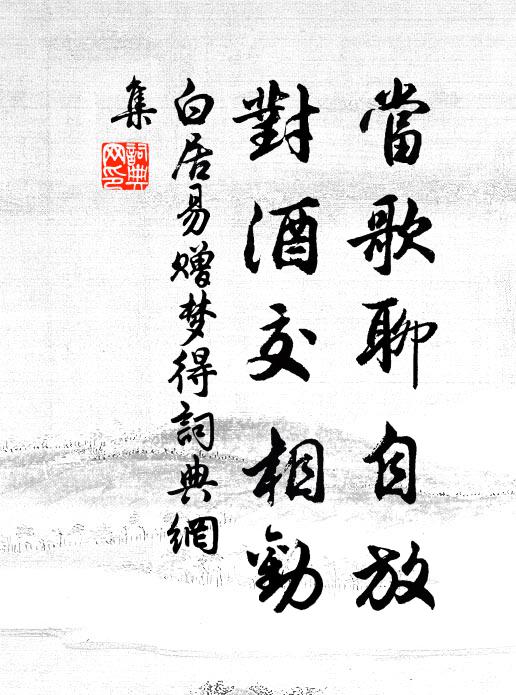 當歌聊自放
對酒交相勸
白居易贈梦得詞典網
集
詞典
网印